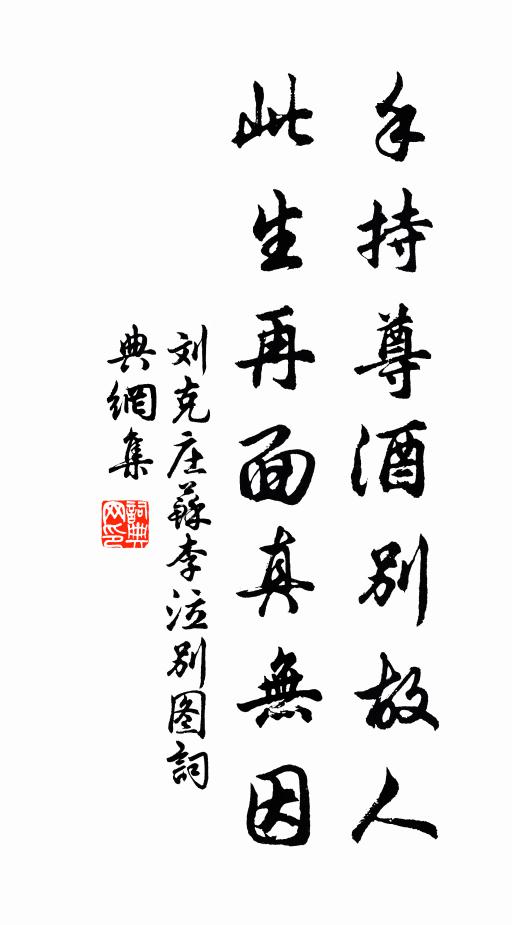 手持尊酒别故人
此生再面真無因
刘克庄蘇李泣别图詞
典網集
詞典网印